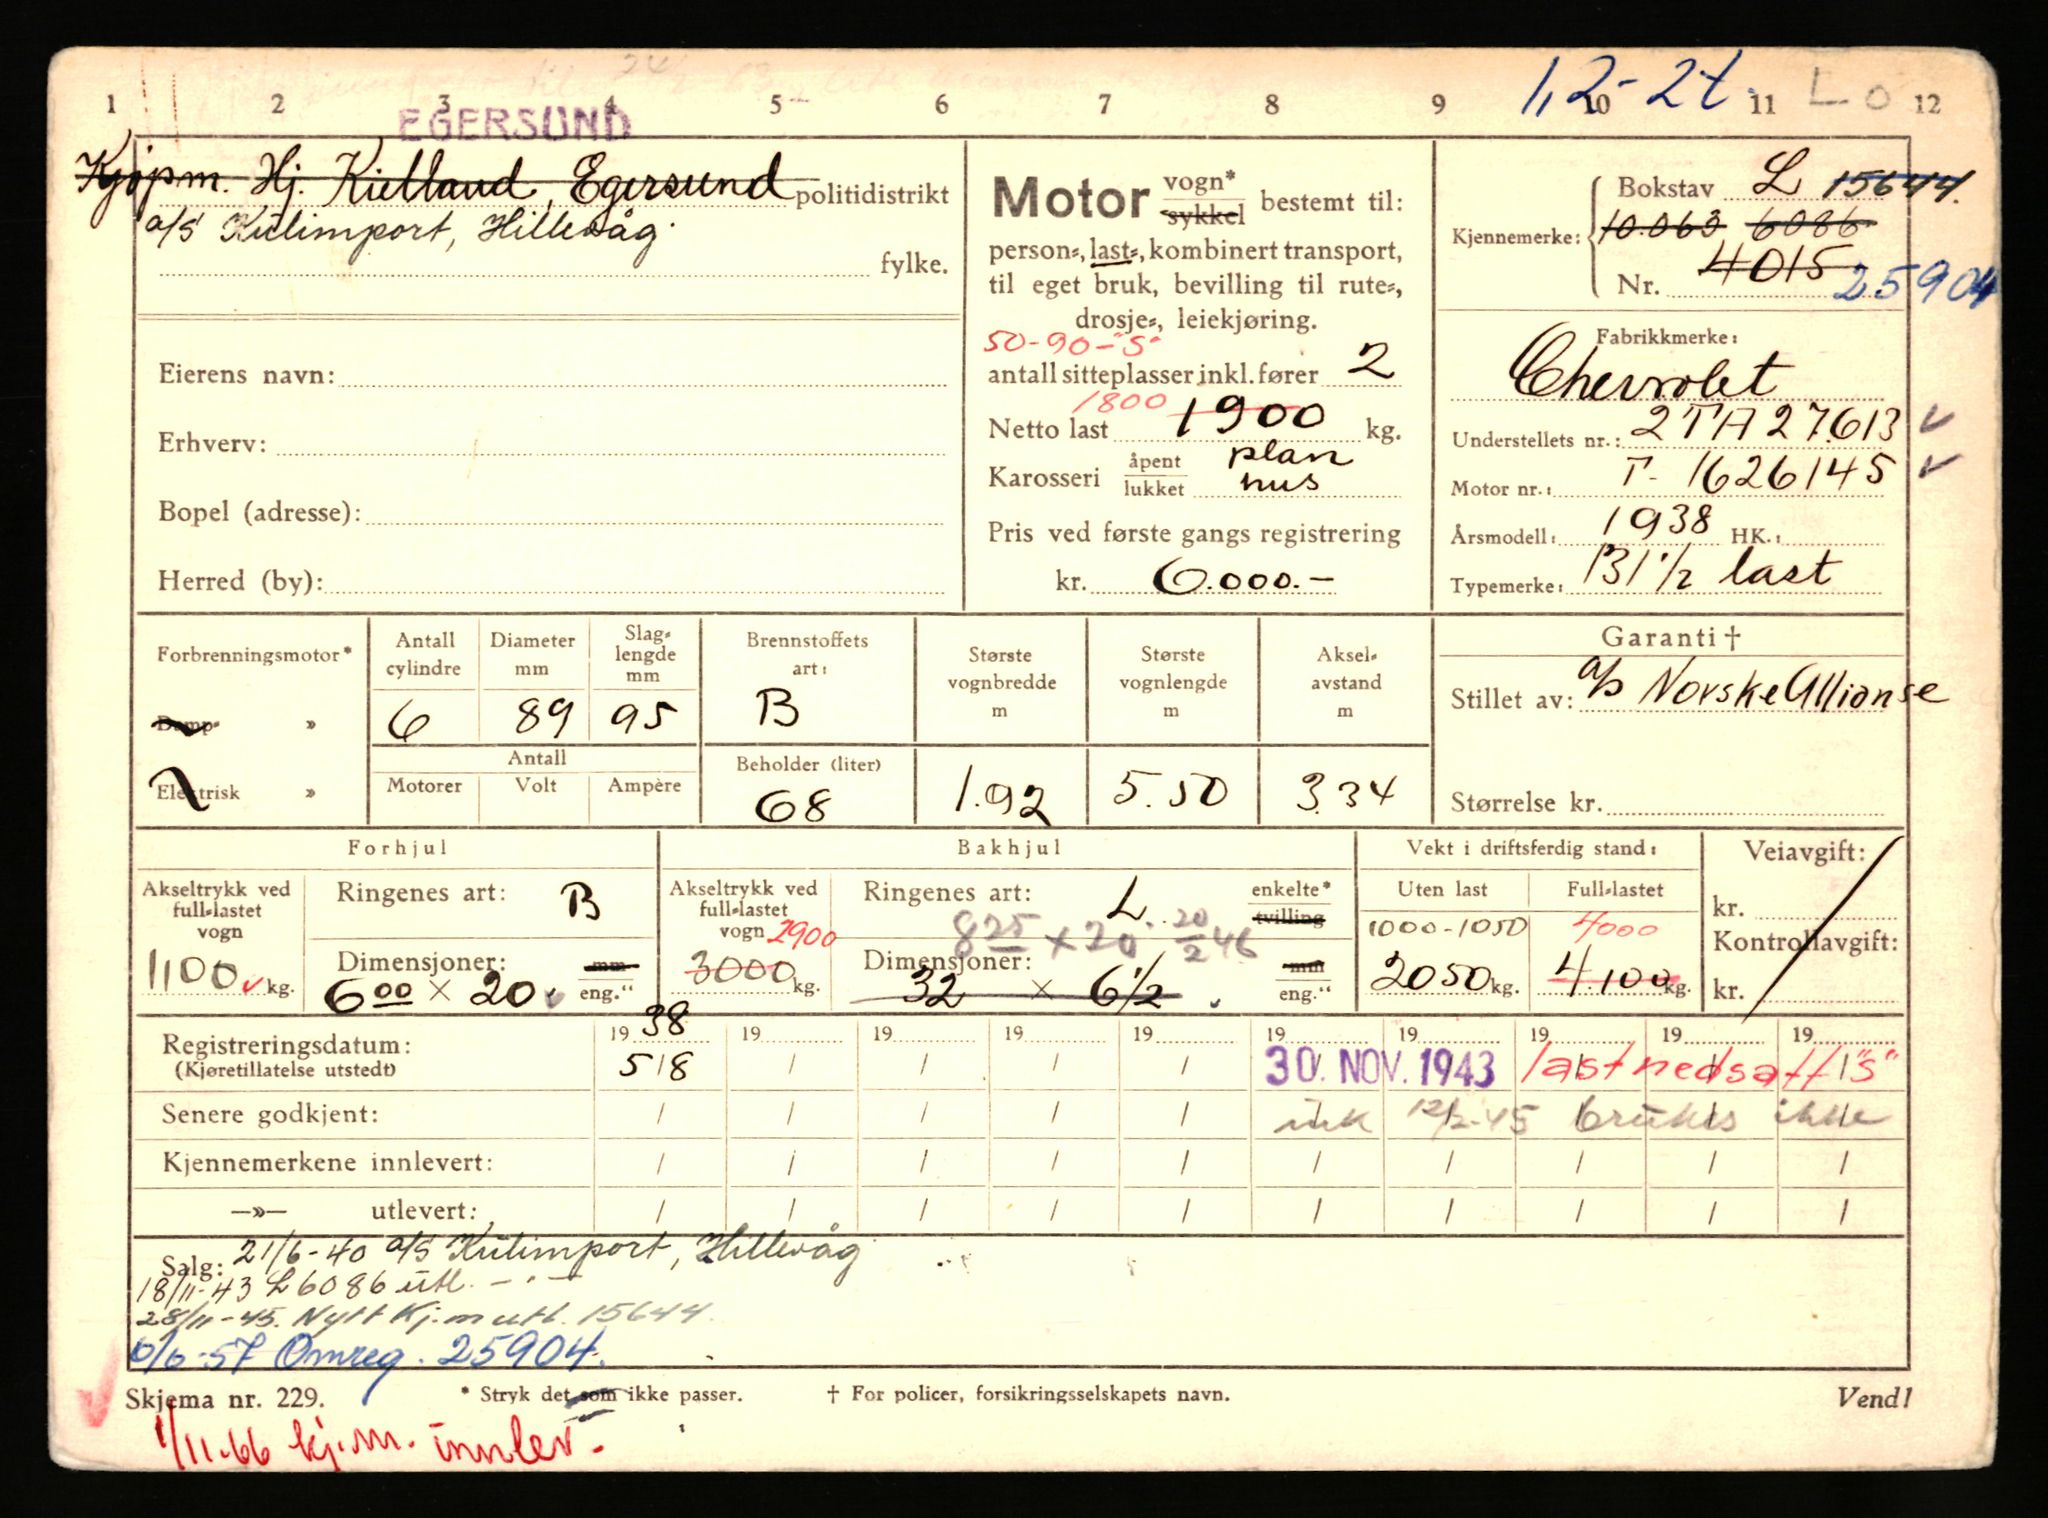 1,2-2t. L o
1 2 3 4 5 6 7 8 9 10 11 12
EGERSUND
Kjøpm. Hj. Kielland, Egersund politidistrikt
a/s Kulimport, Hillevåg.
fylke.
Eierens navn:
Erhverv:
Bopel (adresse):
Herred (by):
Motor vogn* sykkel bestemt til:
person-, last-, kombinert transport,
til eget bruk, bevilling til rute-,
drosje-, leiekjøring.
50-90-"S"
antall sitteplasser inkl. fører 2
1800
Netto last 1900 kg.
Karosseri åpent lukket plan hus
Pris ved første gangs registrering
kr. 6.000.-
Bokstav L 15644.
Kjennemerke: 10.063 6086
Nr. 4015 25904
Fabrikkmerke:
Chevrolet
Understellets nr.: 2TA27613
Motor nr.: T- 1626145
Årsmodell: 1938 HK.:
Typemerke: 131 1/2 last
Forbrenningsmotor*
Damp- »
Elektrisk »
Antall cylindre 6
Diameter mm 89
Slaglengde mm 95
Antall
Motorer Volt Ampère
Brennstoffets art: B
Beholder (liter) 68
Største vognbredde m 1.92
Største vognlengde m 5.50
Akselavstand m 3.34
Garanti †
Stillet av: a/s Norske Allianse
Størrelse kr.
Forhjul
Akseltrykk ved full-lastet vogn 1100 kg.
Ringenes art: B
Dimensjoner: 6 00 × 20. mm eng."
Bakhjul
Akseltrykk ved full-lastet vogn 2900
3000 kg.
Ringenes art: L. enkelte* tvilling
8 25 × 20 20/2 46
Dimensjoner: 32 × 6 1/2 mm eng."
Vekt i driftsferdig stand:
Uten last Full-lastet
1000-1050 4000
2050 kg. 4100 kg.
Veiavgift:
kr.
Kontrollavgift:
kr.
19 38 19 19 19 19 19 19 19 19 19
Registreringsdatum: 5/8 / / / / 30. NOV. 1943 last nedsatt "S"
(Kjøretillatelse utstedt)
Senere godkjent: / / / / / ink 12/2-45 brukes ikke
Kjennemerkene innlevert: / / / / / / / / / /
—»— utlevert: / / / / / / / / / /
Salg: 21/6-40 a/s Kulimport, Hillevåg
18/11-43 L 6086 utl. - " -
28/11-45. Nytt Kj.m utl. 15644.
6/6-57 Omreg. 25904.
Skjema nr. 229. * Stryk det som ikke passer. † For policer, forsikringsselskapets navn. Vend!
1/11-66 kj.m. innlev.